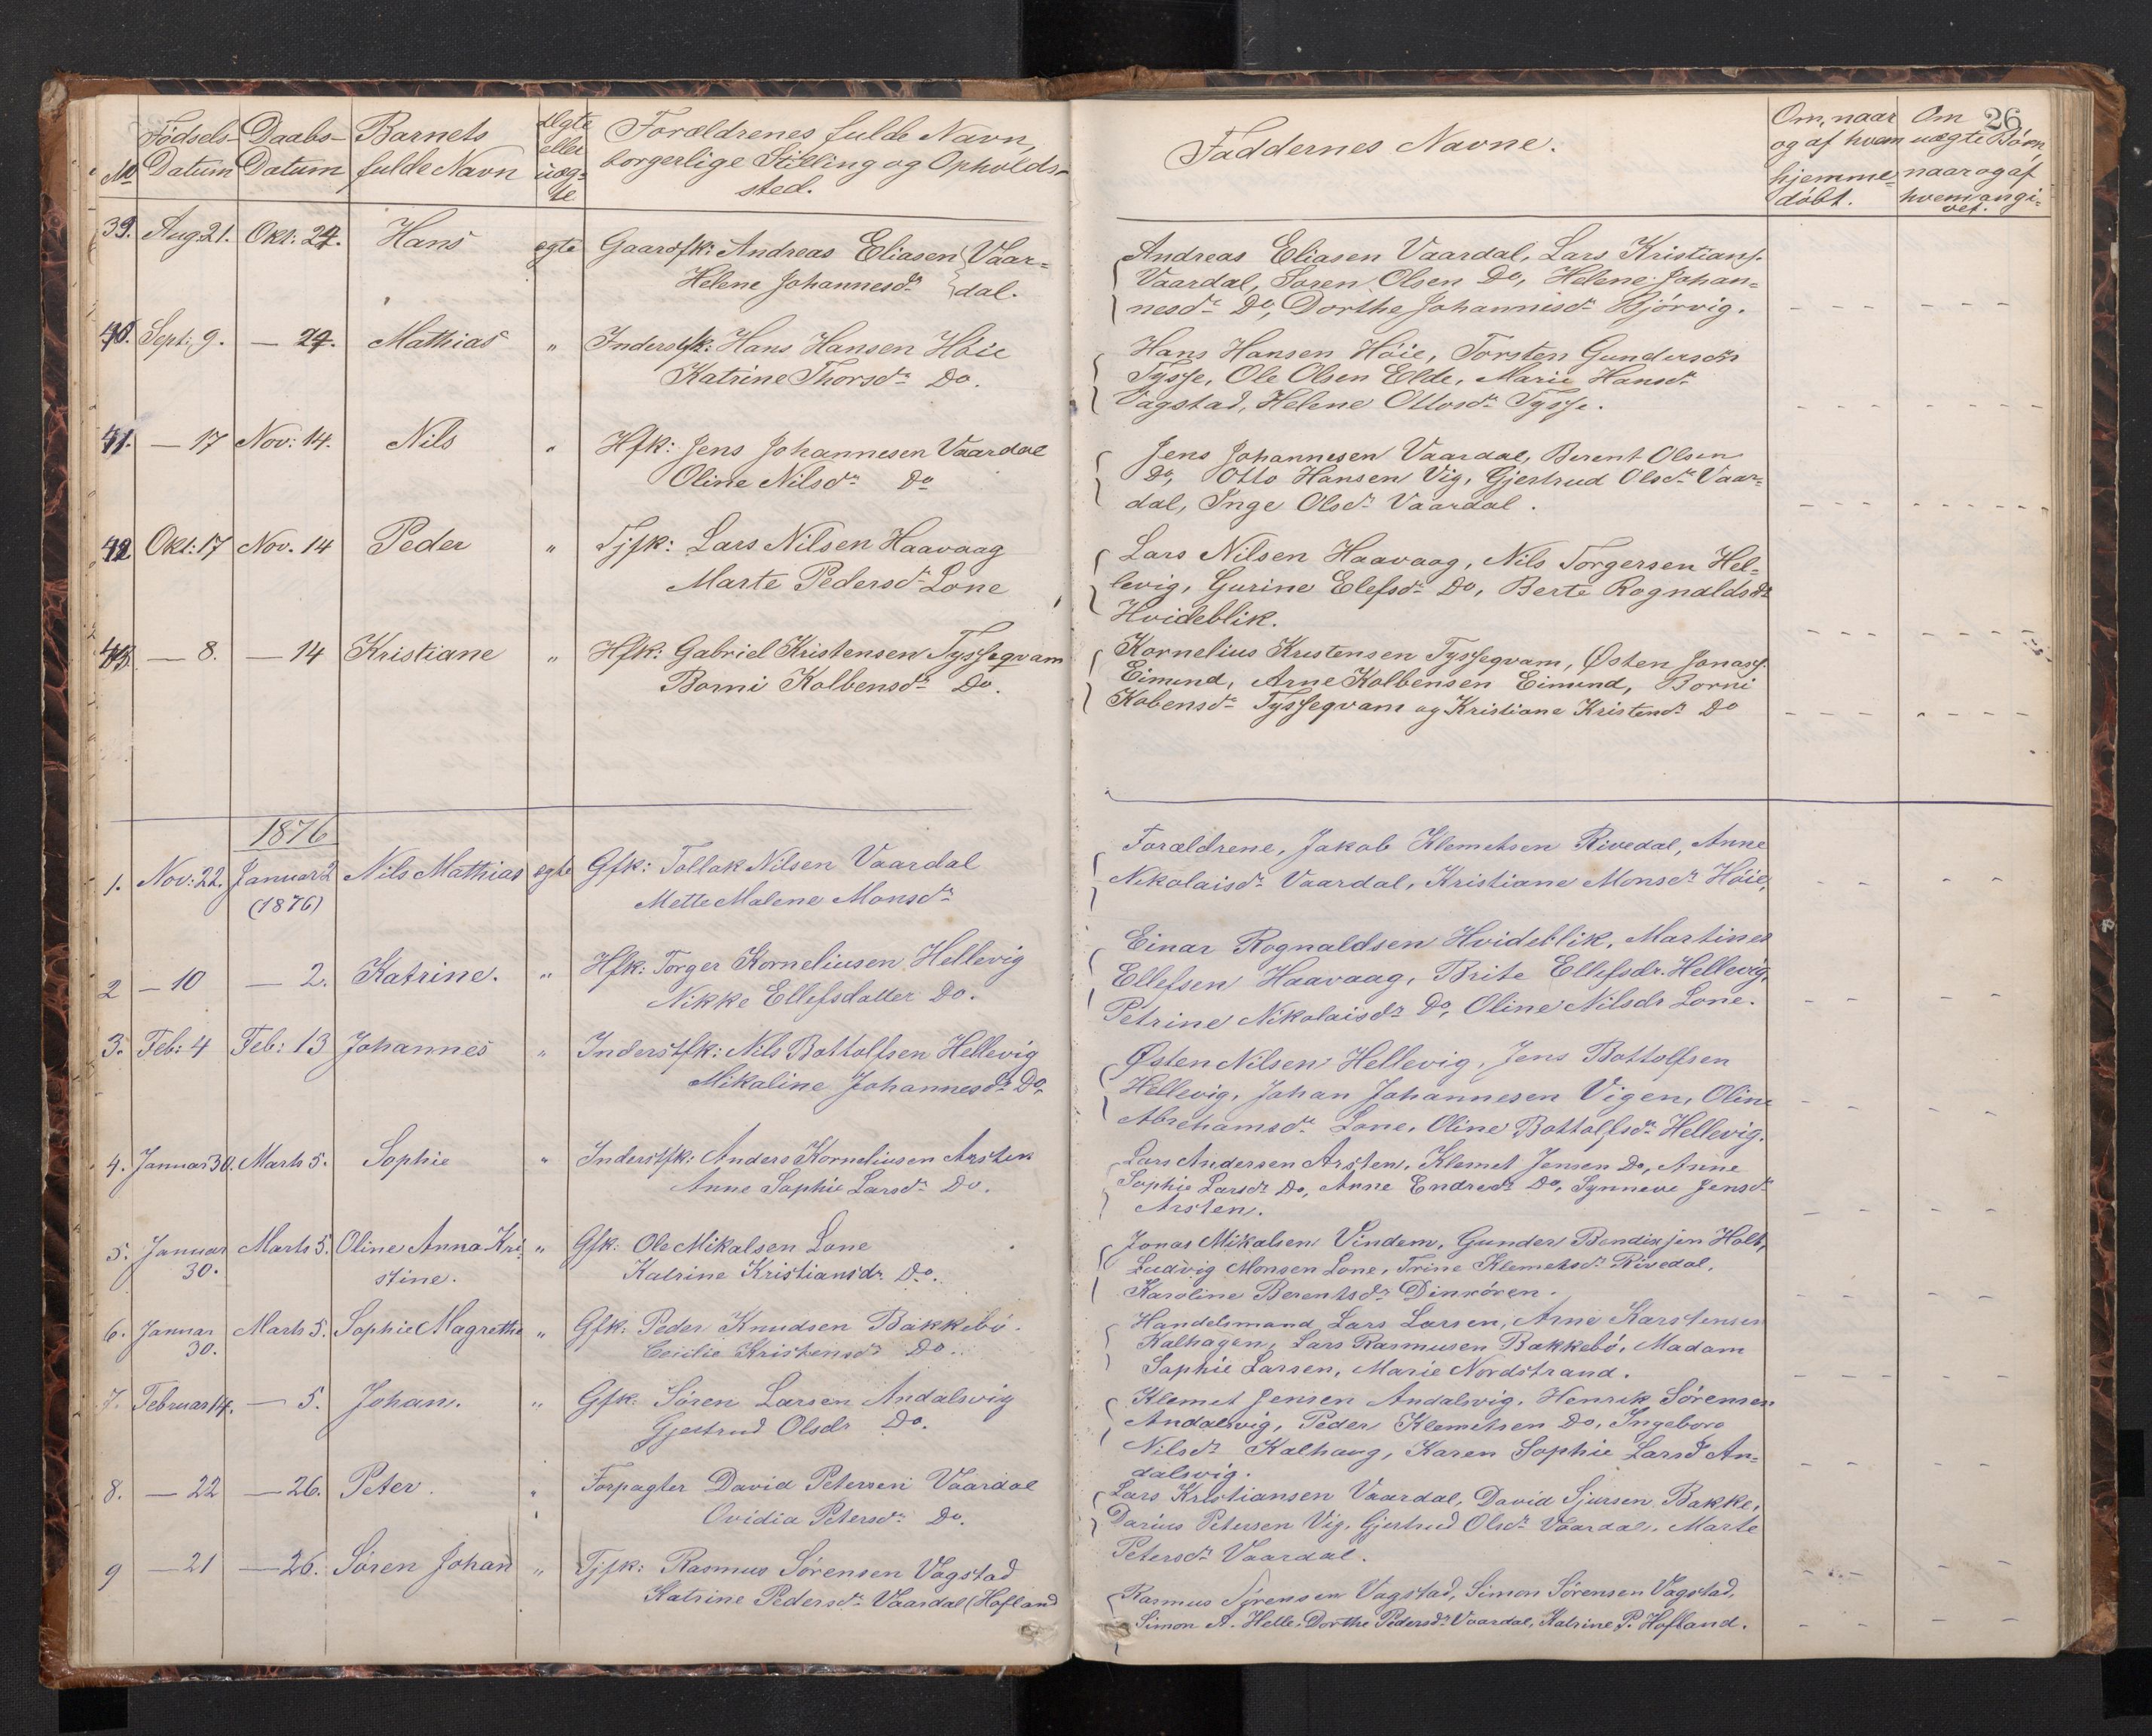 No
Fødsels-
Datum
Daabs-
Datum
Barnets
fulde Navn
Ægte
eller
uæg-
te
Forældrenes fulde Navn,
borgerlige Stilling og Opholds-
sted.
Faddernes Navne.
Om, naar
og af hvem
hjemme-
døbt.
Om
uægte Børn
naar og af
hvem angi-
vet.
26
39. Aug. 21. Okt: 24. Hans egte Gaardfk: Andreas Eliasen Vaar-
Helene Johannesdr dal.
Andreas Eliasen Vaardal, Lars Kristians.
Vaardal, Søren Olsen Do, Helene Johan-
nesdr Do, Dorthe Johannisdr Bjørvig.
40. Sept: 9. — 24. Mathias " Inderstfk: Hans Hansen Høie
Katrine Thorsdr Do.
Hans Hansen Høie, Torsten Gundersen
Tysse, Ole Olsen Elde, Marie Hansdr
Vagstad, Helene Ottosdr Tysse.
41. — 17 Nov: 14. Nils " Hfk: Jens Johannesen Vaardal
Oline Nilsdr Do
Jens Johannesen Vaardal, Berent Olsen
Do, Otto Hansen Vig, Gjertrud Olsdr Vaar-
dal, Inge Olsdr Vaardal.
42 Okt: 17 Nov. 14 Peder " Tjfk: Lars Nilsen Haavaag
Marte Pedersdr Lone
Lars Nilsen Haavaag, Nils Torgersen Hel-
levig, Gurine Elefsdr Do, Berte Rognaldsdr
Hvideblik.
43. — 8. — 14 Kristiane " Hfk: Gabriel Kristensen Tysseqvam
Borni Kolbensdr Do.
Kornelius Kristensen Tyssegvam, Østen Jonass.
Eimind, Arne Kolbensen Eimind, Borni
Kobensdr Tysseqvam og Kristiane Kristendr Do
1876
1. Nov: 22. Januar 2 Nils Mathias egte Gfk: Tollak Nilsen Vaardal
(1876) Mette Malene Monsdr
Forældrene, Jakob Klemetsen Rivedal, Anne
Nikolaisdr Vaardal, Kristiane Monsdr Høie,
2 — 10 — 2. Katrine. " Hfk: Torger Korneliusen Hellevig
Nikke Ellefsdatter Do.
Einar Rognaldsen Hvideblik, Martines
Ellefsen Haavaag, Brite Ellefsdr. Hellevig,
Petrine Nikolaisdr Do, Oline Nilsdr Lone.
3. Feb: 4 Feb: 13 Johannes " Inderstfk: Nils Bottolfsen Hellevig
Mikaline Johannesdr Do.
Østen Nilsen Hellevig, Jens Bottolfsen
Hellevig, Johan Johannesen Vigen, Oline
Abrehamsdr Lone, Oline Bottolfsdr Hellevig.
4. Januar 30. Marts 5. Sophie " Inderstfk: Anders Korneliusen Arsten
Anne Sophie Larsdr Do.
Lars Andersen Arsten, Klemet Jensen Do, Anne
Sophie Larsdr Do, Anne Endredr Do, Synneve Jensdr
Arsten.
5. Januar Marts 5. Oline Anna Kri- " Gfk: Ole Mikalsen Lone
30. stine. Katrine Kristiansdr Do.
Jonas Mikalsen Vindem, Gunder Bendixsen Holt,
Ludvig Monsen Lone, Trine Klemetsdr Rivedal,
Karoline Berentsdr Dinrøren.
6. Januar Marts 5. Sophie Magrethe " Gfk: Peder Knudsen Bakkebø.
30. Cecilie Kristensdr Do.
Handelsmand Lars Larsen, Arne Karstensen
Kalhagen, Lars Rasmusen Bakkebø, Madam
Sophie Larsen, Marie Nordstrand.
7. Februar 14. — 5. Johan. " Gfk: Søren Larsen Andalsvig
Gjertrud Olsdr Do.
Klemet Jensen Andalsvig, Henrik Sørensen
Andalsvig, Peder Klemetsen Do, Ingeborg
Nilsdr Kalhaug, Karen Sophie Larsd An-
dalsvig.
8. — 22 — 26. Peter. " Forpagter David Petersen Vaardal
Ovidia Petersdr Do.
Lars Kristiansen Vaardal, David Sjursen Bakke,
Darius Petersen Vig, Gjertrud Olsdr Vaardal, Marte
Petersdr Vaardal.
9 — 21 — 26. Søren Johan " Tjfk: Rasmus Sørensen Vagstad
Katrine Pedersdr Vaardal (Hofland
Rasmus Sørensen Vagstad, Simon Sørensen Vagstad,
Simon A. Helle, Dorthe Pedersdr Vaardal, Katrine P. Hofland.